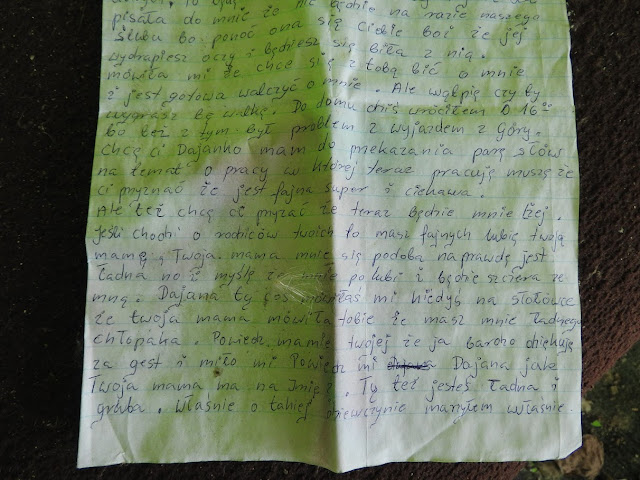 pisała do mnie że nie będzie na razie naszego
ślubu bo ponoć ona się Ciebie boi że jej
wydrapiesz oczy i będziesz się biła z nią.
mówiła mi że chce się z tobą bić o mnie
i jest gotowa walczyć o mnie. Ale wątpię czy by
wygrasz tą walkę. Do domu dziś wróciłem o 16⁰⁰
bo też z tym był problem z wyjazdem z góry.
chcę ci Dajanko mam do przekazania parę słów
na temat o pracy w której teraz pracują muszę że
ci pryznać że jest fajna super i ciekawa.
Ale też chcę ci pryzać że teraz będzie mnie lżej.
Jeśli chodzi o rodziców twoich to masz fajnych lubię twoją
mamę, Twoja mama mnie się podoba naprawdę jest
ładna no i myślę że mnie polubi i będzie szczera ze
mną. Dajana ty coś mówiłaś mi kiedyś na stołówce
że twoja mama mówiła tobie że masz mnie ładnego
chłopaka. Powiedz mamie twojej że ja bardzo dziękują
za gest i miło mi Powiedz mi Dajana jak
Twoja mama ma na Imię?. Ty też jesteś ładna i
gruba. Właśnie o takiej dziewczynie marzyłem właśnie.